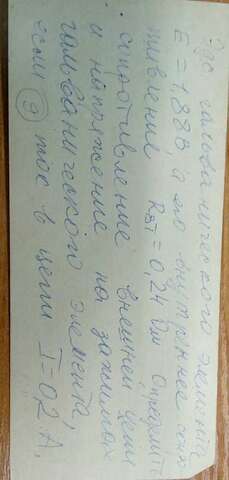 Эдс гальванического элемента
E = 1,88В, а его внутреннее соп-
тивление Rвт = 0,24 Ом Определить
сопротивление внешней цепи
и напряжение на зажимах
гальванического элемента,
если э ток в цепи I = 0,2 А,